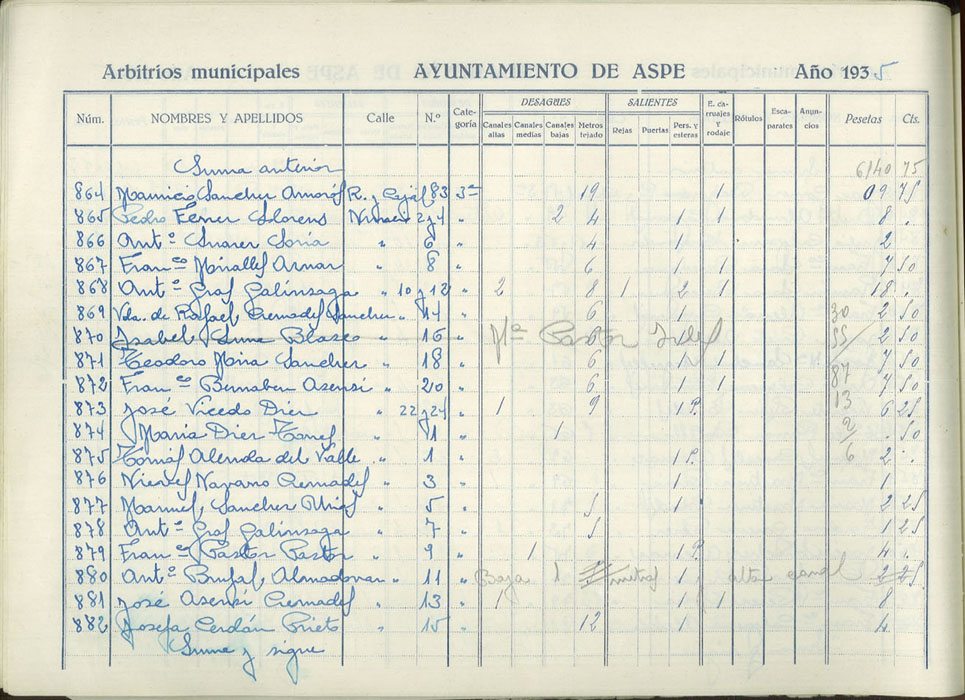 Arbitrios municipales AYUNTAMIENTO DE ASPE Año 1935
Núm. NOMBRES Y APELLIDOS Calle N.º Categoría DESAGUES SALIENTES E. carruajes y rodaje Rótulos Escaparates Anuncios Pesetas Cts.
Canales altas Canales medias Canales bajas Metros tejado Rejas Puertas Pers. y esteras
Suma anterior 6140 75
864 Mauricio Sanchez Amorós R. y Cajal 83 3ª 19 1 09 75
865 Pedro Ferrer Llorens 2 y 4 " 2 4 1 1 8 .
866 Antº Suarez Soria " 6 " 4 1 2
867 Franco Miralles Aznar " 8 " 6 1 1 7 50
868 Antº Graf Galinsoga " 10 y 12 2 8 1 2 1 18 .
869 Vda. de Rafael Cremades Sanchez " 14 " 6 1 2 50
870 Isabel Blasco " 16 " Mª Pastor 6 1 2 50
871 Teodoro Mira Sanchez " 18 " 6 1 1 7 50
872 Franco Bernabeu Asensi " 20 " 6 1 1 7 50
873 José Vicedo Diez " 22 y 24 " 1 9 1 P. 6 25
874 Maria Diez Torres " 1 " 1 . 50
875 Tomás Alenda del Valle " 1 " 1 P. 2 .
876 Nieves Navarro Cremades " 3 " 1 1
877 Manuel Sanchez " 5 " 5 1 2 25
878 Antº Graf Galinsoga " 7 " 5 1 25
879 Franco Pastor Pastor " 9 " 1 1 P. 4 .
880 Antº Brufal Almodovar " 11 " Baja 1 metros 1 alta canal 2 25
881 José Asensi Cremades " 13 " 1 1 1 8
882 Josefa Cerdán Prieto " 15 " 12 1 4
Suma y sigue
30
55
87
13
2
6